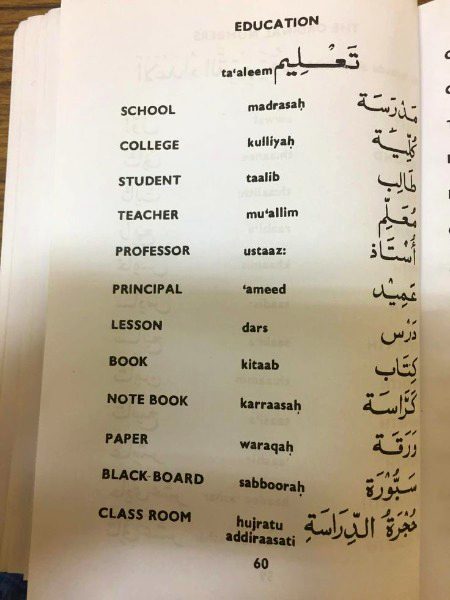 EDUCATION
ta'aleem تَعْلِيم
SCHOOL madrasaḥ مَدْرَسَة
COLLEGE kulliyaḥ كُلِّيَّة
STUDENT taalib طَالِب
TEACHER mu'allim مُعَلِّم
PROFESSOR ustaaz: أُسْتَاذ
PRINCIPAL 'ameed عَمِيْد
LESSON dars دَرْس
BOOK kitaab كِتَاب
NOTE BOOK karraasaḥ كَرَّاسَة
PAPER waraqaḥ وَرَقَة
BLACK-BOARD sabbooraḥ سَبُّوْرَة
CLASS ROOM hujratu حُجْرَةُ الدِّرَاسَةِ
addiraasati
60